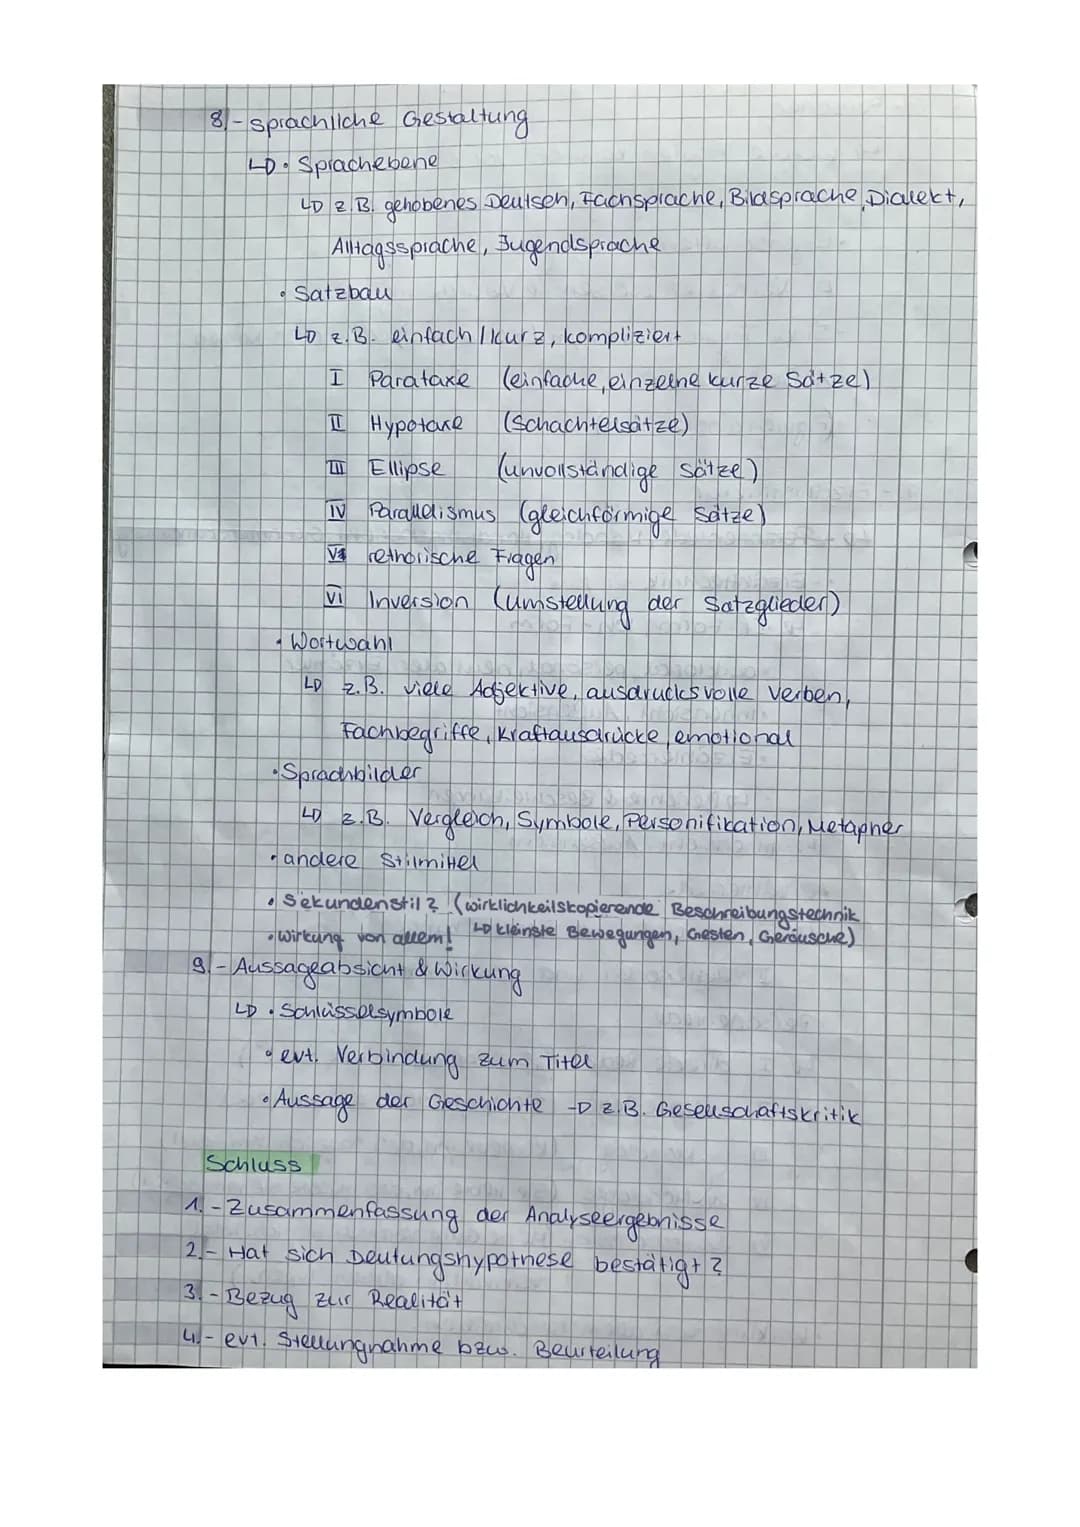 8.- sprachliche Gestaltung
↳ • Sprachebene
↳ z.B. gehobenes Deutsch, Fachsprache, Bildsprache, Dialekt,
Alltagssprache, Jugendsprache
• Satzbau
↳ z.B. einfach/kurz, kompliziert
I Parataxe (einfache, einzelne kurze Sätze)
II Hypotaxe (Schachtelsätze)
III Ellipse (unvollständige Sätze)
IV Parallelismus (gleichförmige Sätze)
V rethorische Fragen
VI Inversion (Umstellung der Satzglieder)
• Wortwahl
↳ z.B. viele Adjektive, ausdrucksvolle Verben,
Fachbegriffe, Kraftausdrücke, emotional
• Sprachbilder
↳ z.B. Vergleich, Symbole, Personifikation, Metapher
• andere Stilmittel
• Sekundenstil? (wirklichkeitskopierende Beschreibungstechnik
↳ kleinste Bewegungen, Gesten, Geräusche)
• Wirkung von allem!
9.- Aussageabsicht & Wirkung
↳ • Schlüsselsymbole
• evt. Verbindung zum Titel
• Aussage der Geschichte → z.B. Gesellschaftskritik
Schluss
1.- Zusammenfassung der Analyseergebnisse
2.- Hat sich Deutungshypothese bestätigt?
3.- Bezug zur Realität
4.- evt. Stellungnahme bzw. Beurteilung